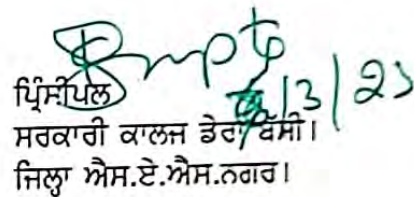 ਪ੍ਰਿੰਸੀਪਲ
ਸਰਕਾਰੀ ਕਾਲਜ ਡੇਰਾ ਬੱਸੀ।
ਜਿਲ੍ਹਾ ਐਸ.ਏ.ਐਸ.ਨਗਰ।